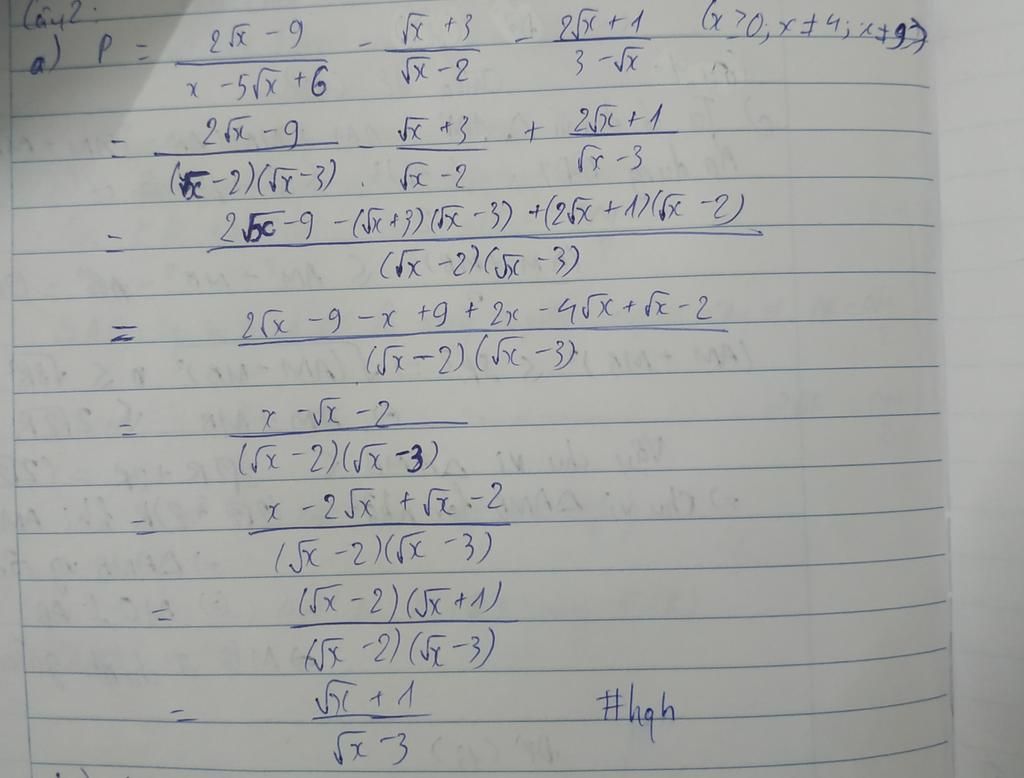 Câu 2:
a) P = (2√x - 9)/(x - 5√x + 6) - (√x + 3)/(√x - 2) - (2√x + 1)/(3 - √x) (x ≥ 0; x ≠ 4; x ≠ 9)
= (2√x - 9)/((√x - 2)(√x - 3)) - (√x + 3)/(√x - 2) + (2√x + 1)/(√x - 3)
= (2√x - 9 - (√x + 3)(√x - 3) + (2√x + 1)(√x - 2))/((√x - 2)(√x - 3))
= (2√x - 9 - x + 9 + 2x - 4√x + √x - 2)/((√x - 2)(√x - 3))
= (x - √x - 2)/((√x - 2)(√x - 3))
= (x - 2√x + √x - 2)/((√x - 2)(√x - 3))
= ((√x - 2)(√x + 1))/((√x - 2)(√x - 3))
= (√x + 1)/(√x - 3) #hqh